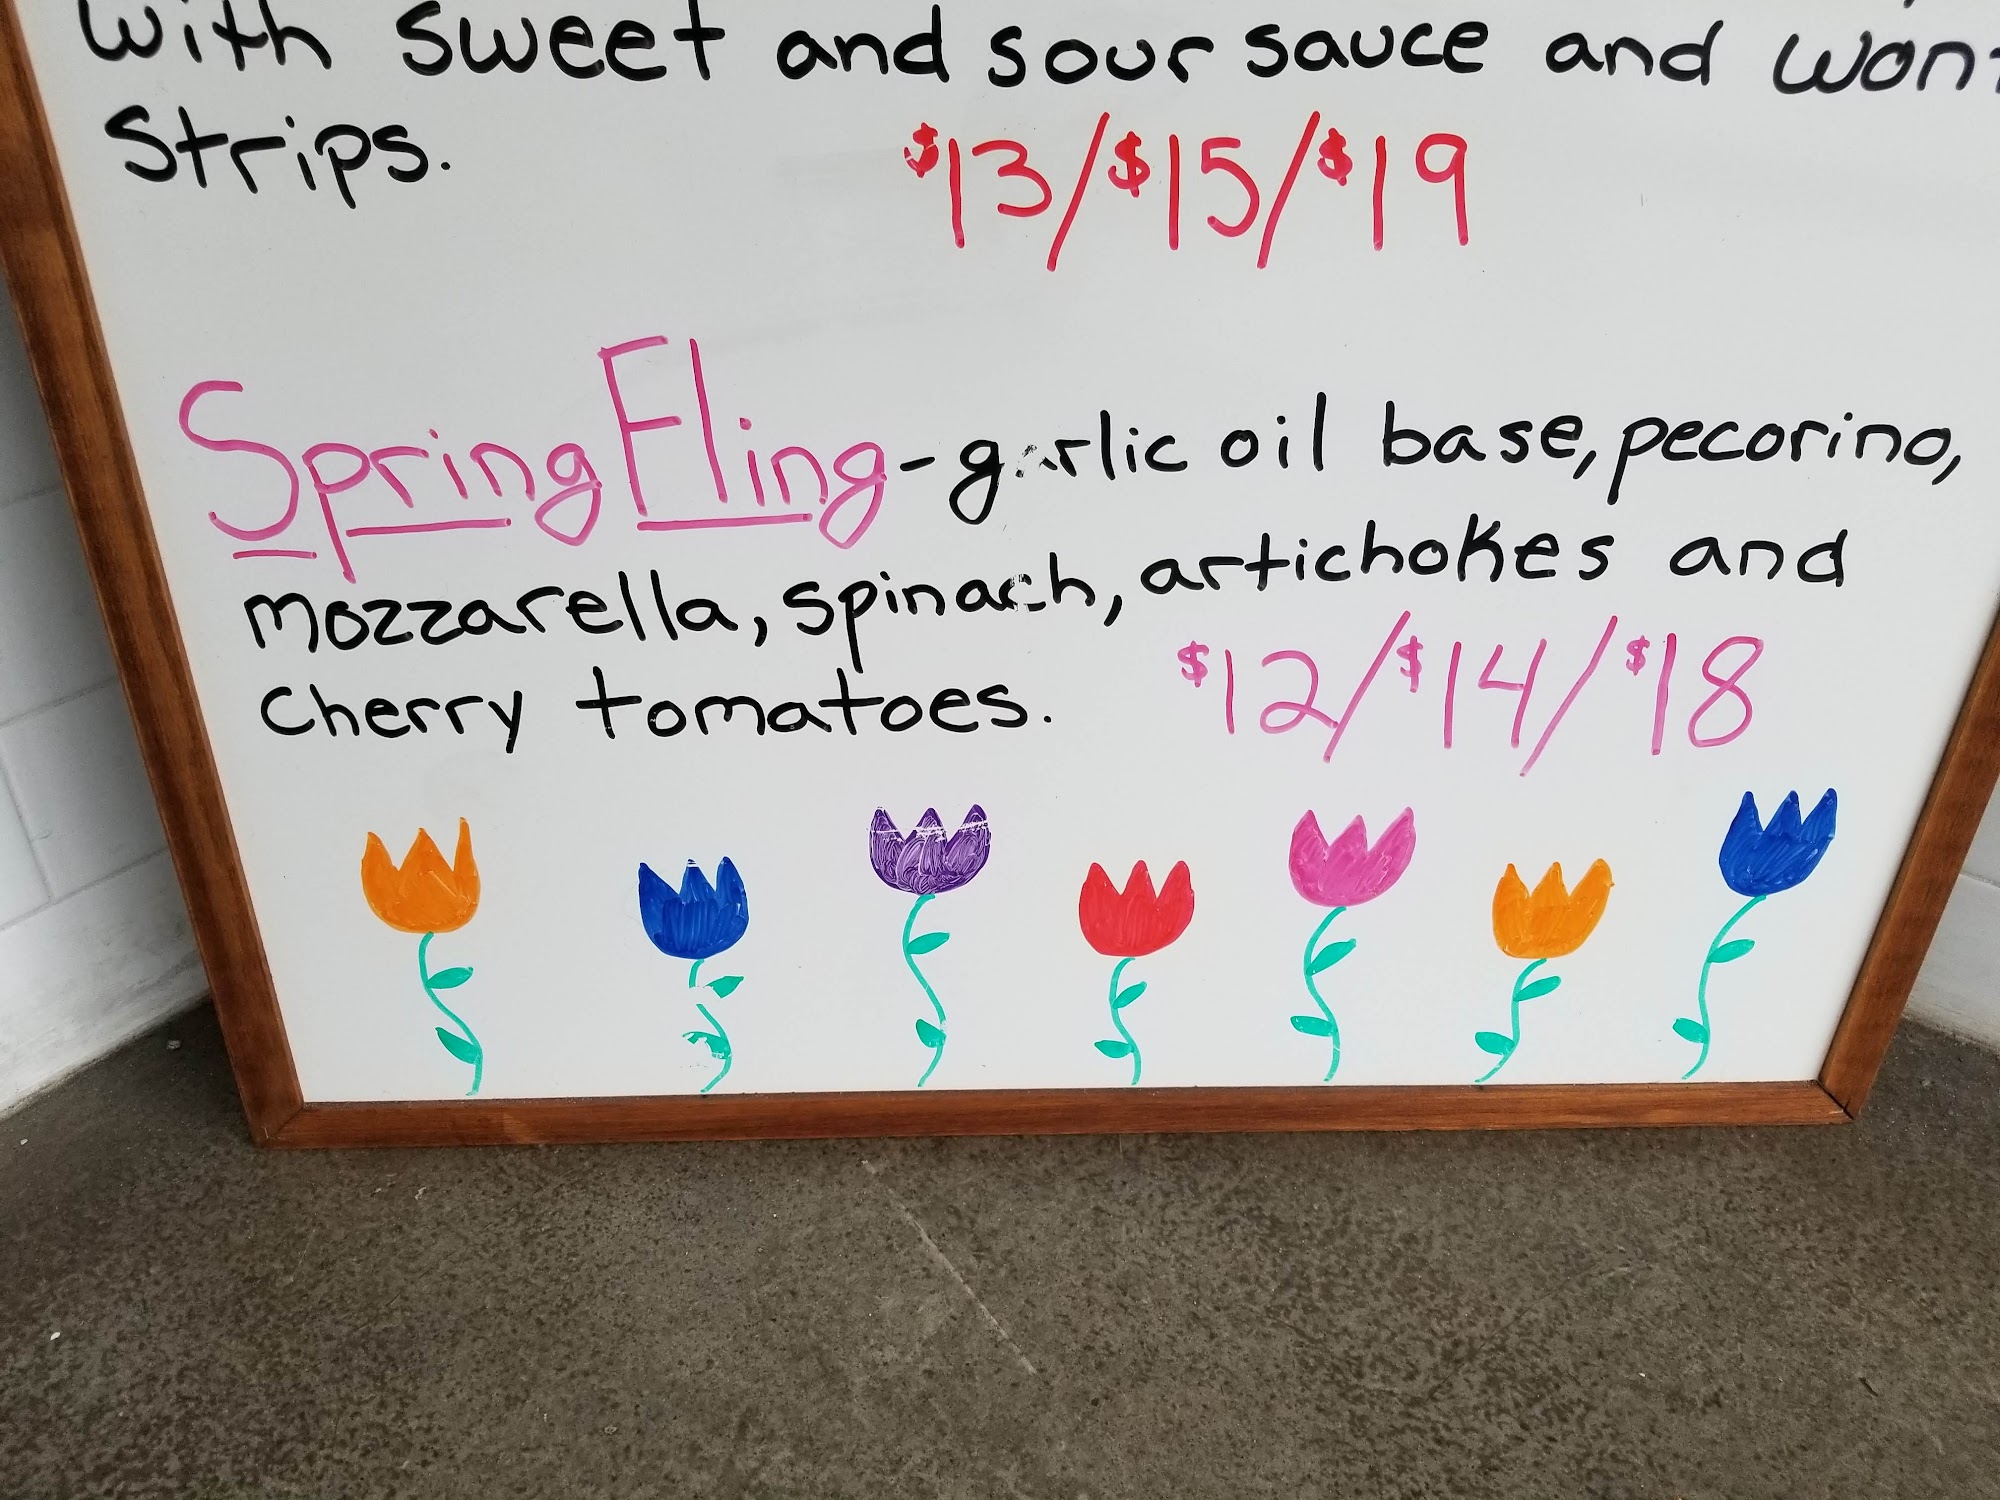 with sweet and sour sauce and
strips.
$13/$15/$19
Spring Fling-garlic oil base, pecorino,
mozzarella, spinach, artichokes and
cherry tomatoes.
$12/$14/$18